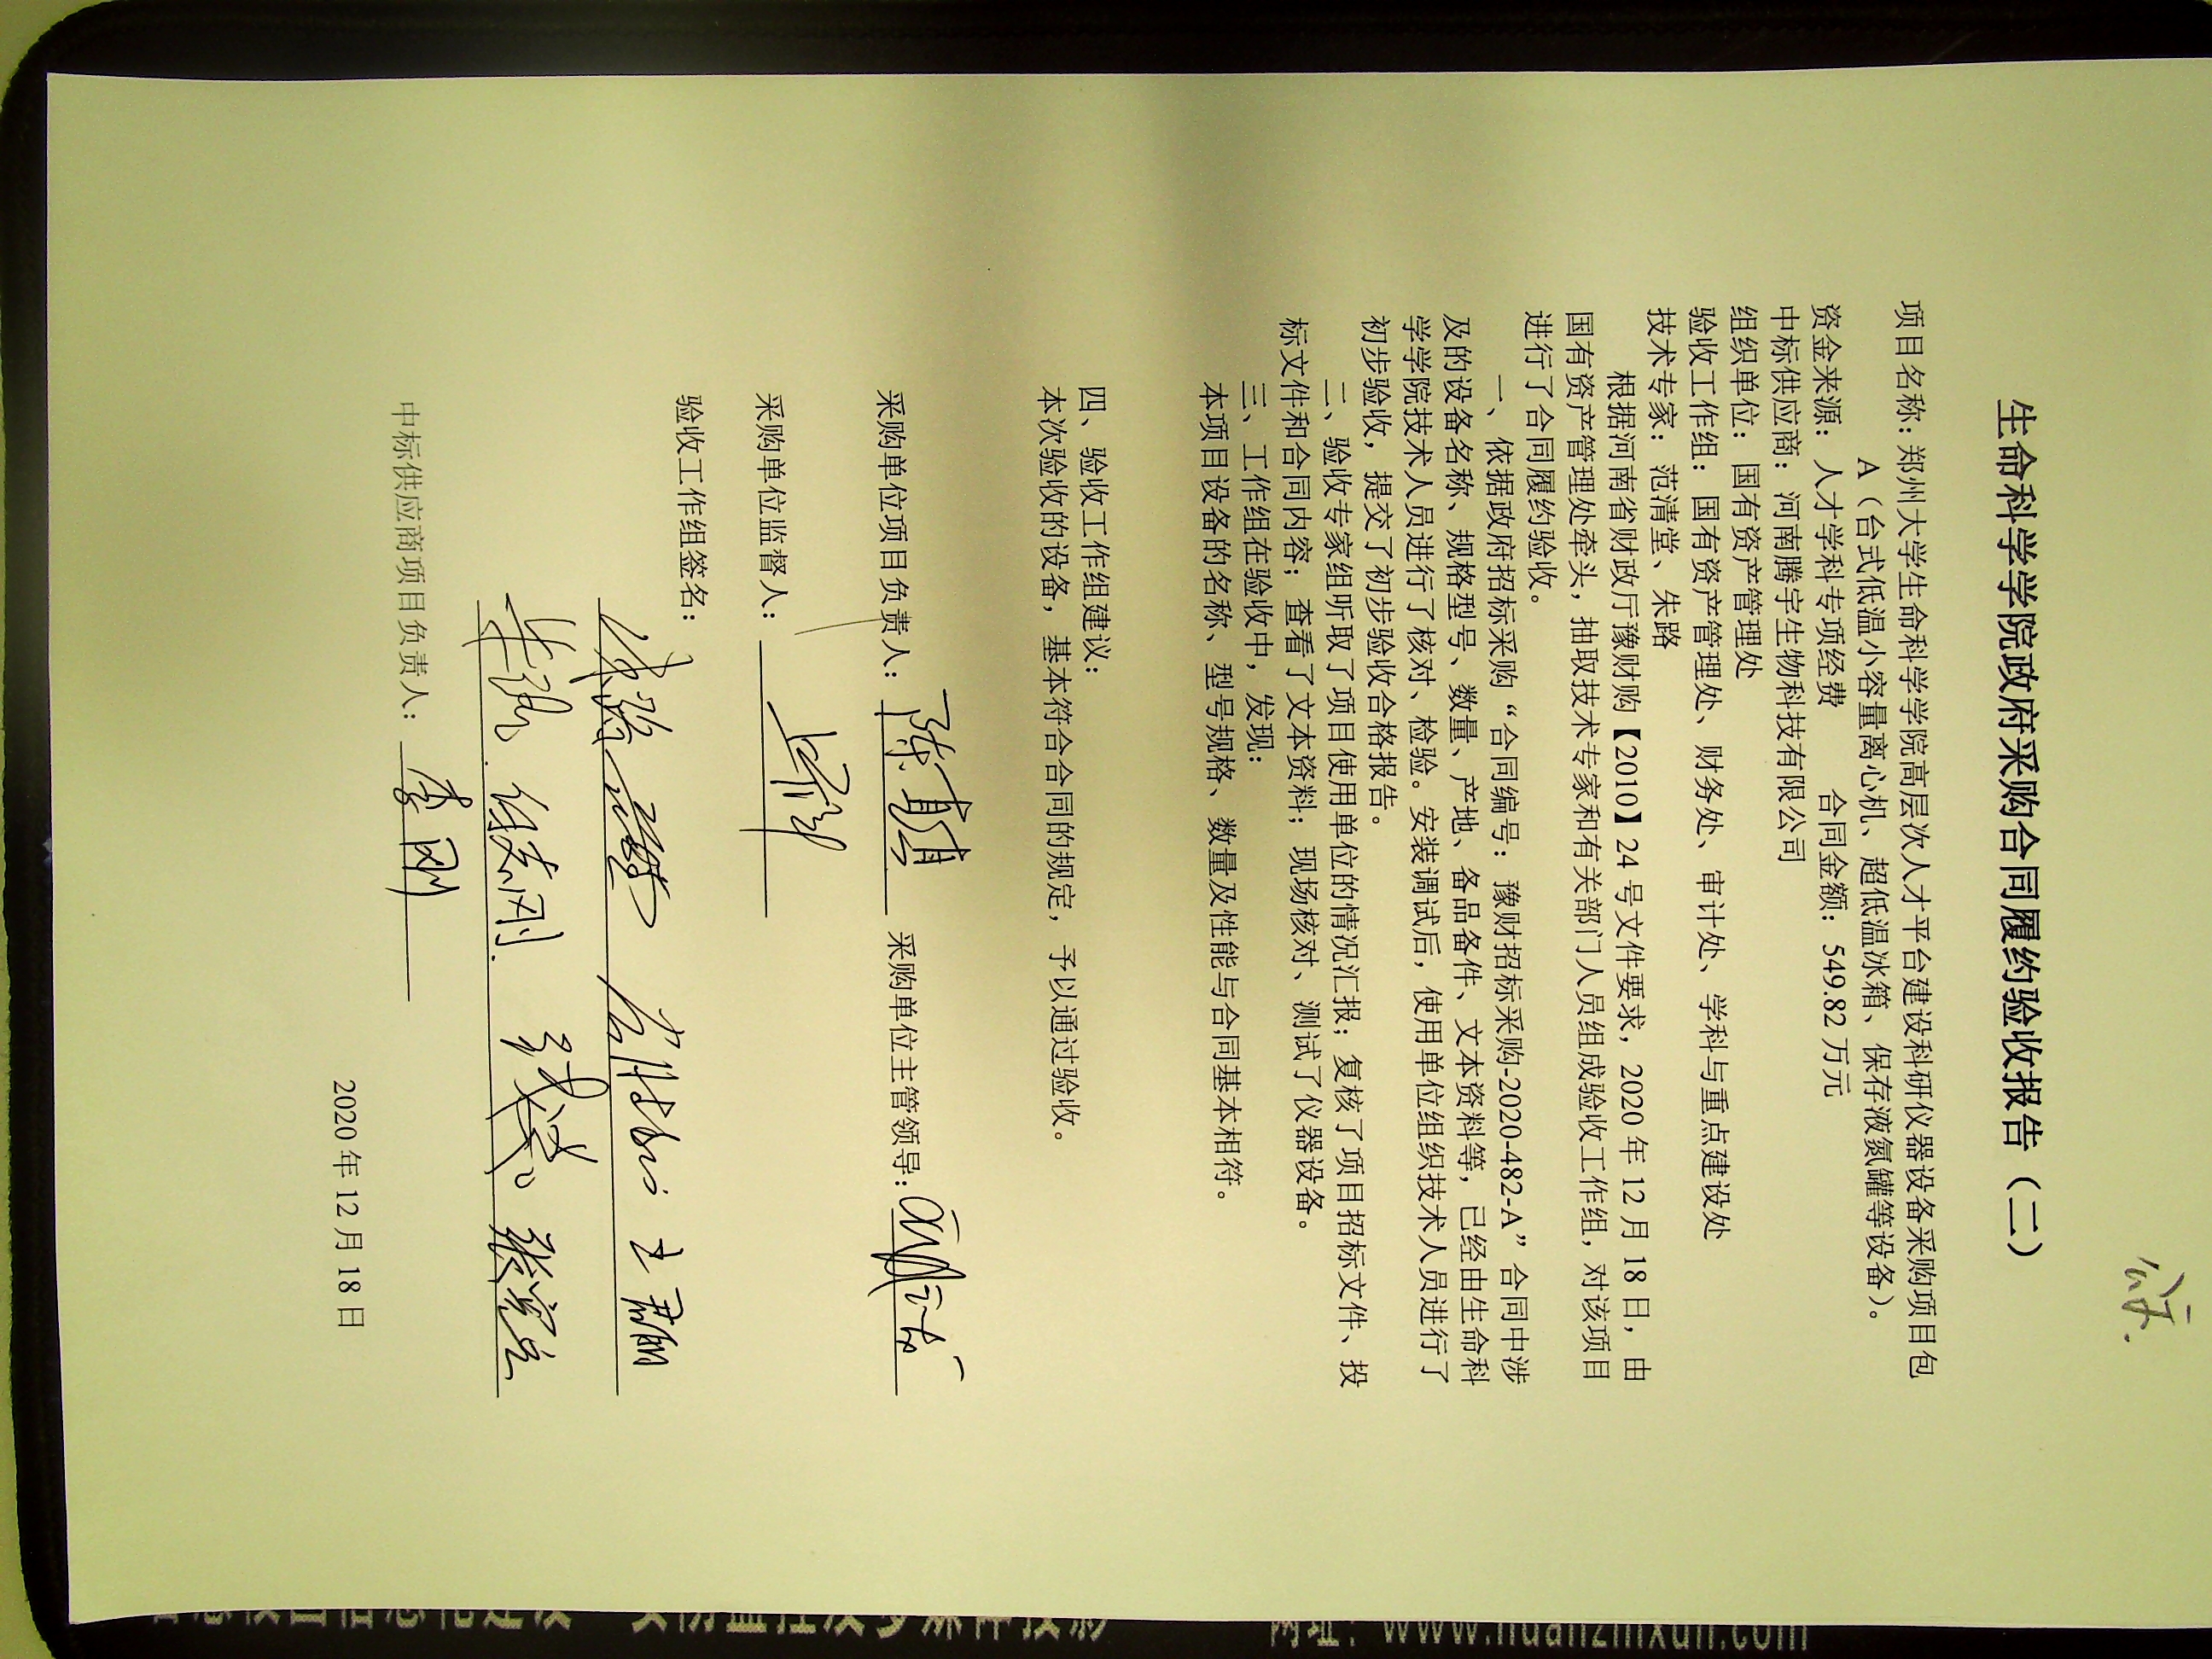 生命科学学院政府采购合同履约验收报告（二）
项目名称：郑州大学生命科学学院高层次人才平台建设科研仪器设备采购项目包
A（台式低温小容量离心机、超低温冰箱、保存液氮罐等设备）。
资金来源：人才学科专项经费 合同金额：549.82 万元
中标供应商：河南腾宇生物科技有限公司
组织单位：国有资产管理处
验收工作组：国有资产管理处、财务处、审计处、学科与重点建设处
技术专家：范清堂、朱路
根据河南省财政厅豫财购【2010】24 号文件要求，2020 年 12 月 18 日，由
国有资产管理处牵头，抽取技术专家和有关部门人员组成验收工作组，对该项目
进行了合同履约验收。
一、依据政府招标采购“合同编号：豫财招标采购-2020-482-A”合同中涉
及的设备名称、规格型号、数量、产地、备品备件、文本资料等，已经由生命科
学学院技术人员进行了核对、检验。安装调试后，使用单位组织技术人员进行了
初步验收，提交了初步验收合格报告。
二、验收专家组听取了项目使用单位的情况汇报；复核了项目招标文件、投
标文件和合同内容；查看了文本资料；现场核对、测试了仪器设备。
三、工作组在验收中，发现：
本项目设备的名称、型号规格、数量及性能与合同基本相符。
四、验收工作组建议：
本次验收的设备，基本符合合同的规定，予以通过验收。
采购单位项目负责人： 采购单位主管领导：
采购单位监督人：
验收工作组签名：
中标供应商项目负责人：李刚
2020 年 12 月 18 日
网址：www.huanzhixun.com